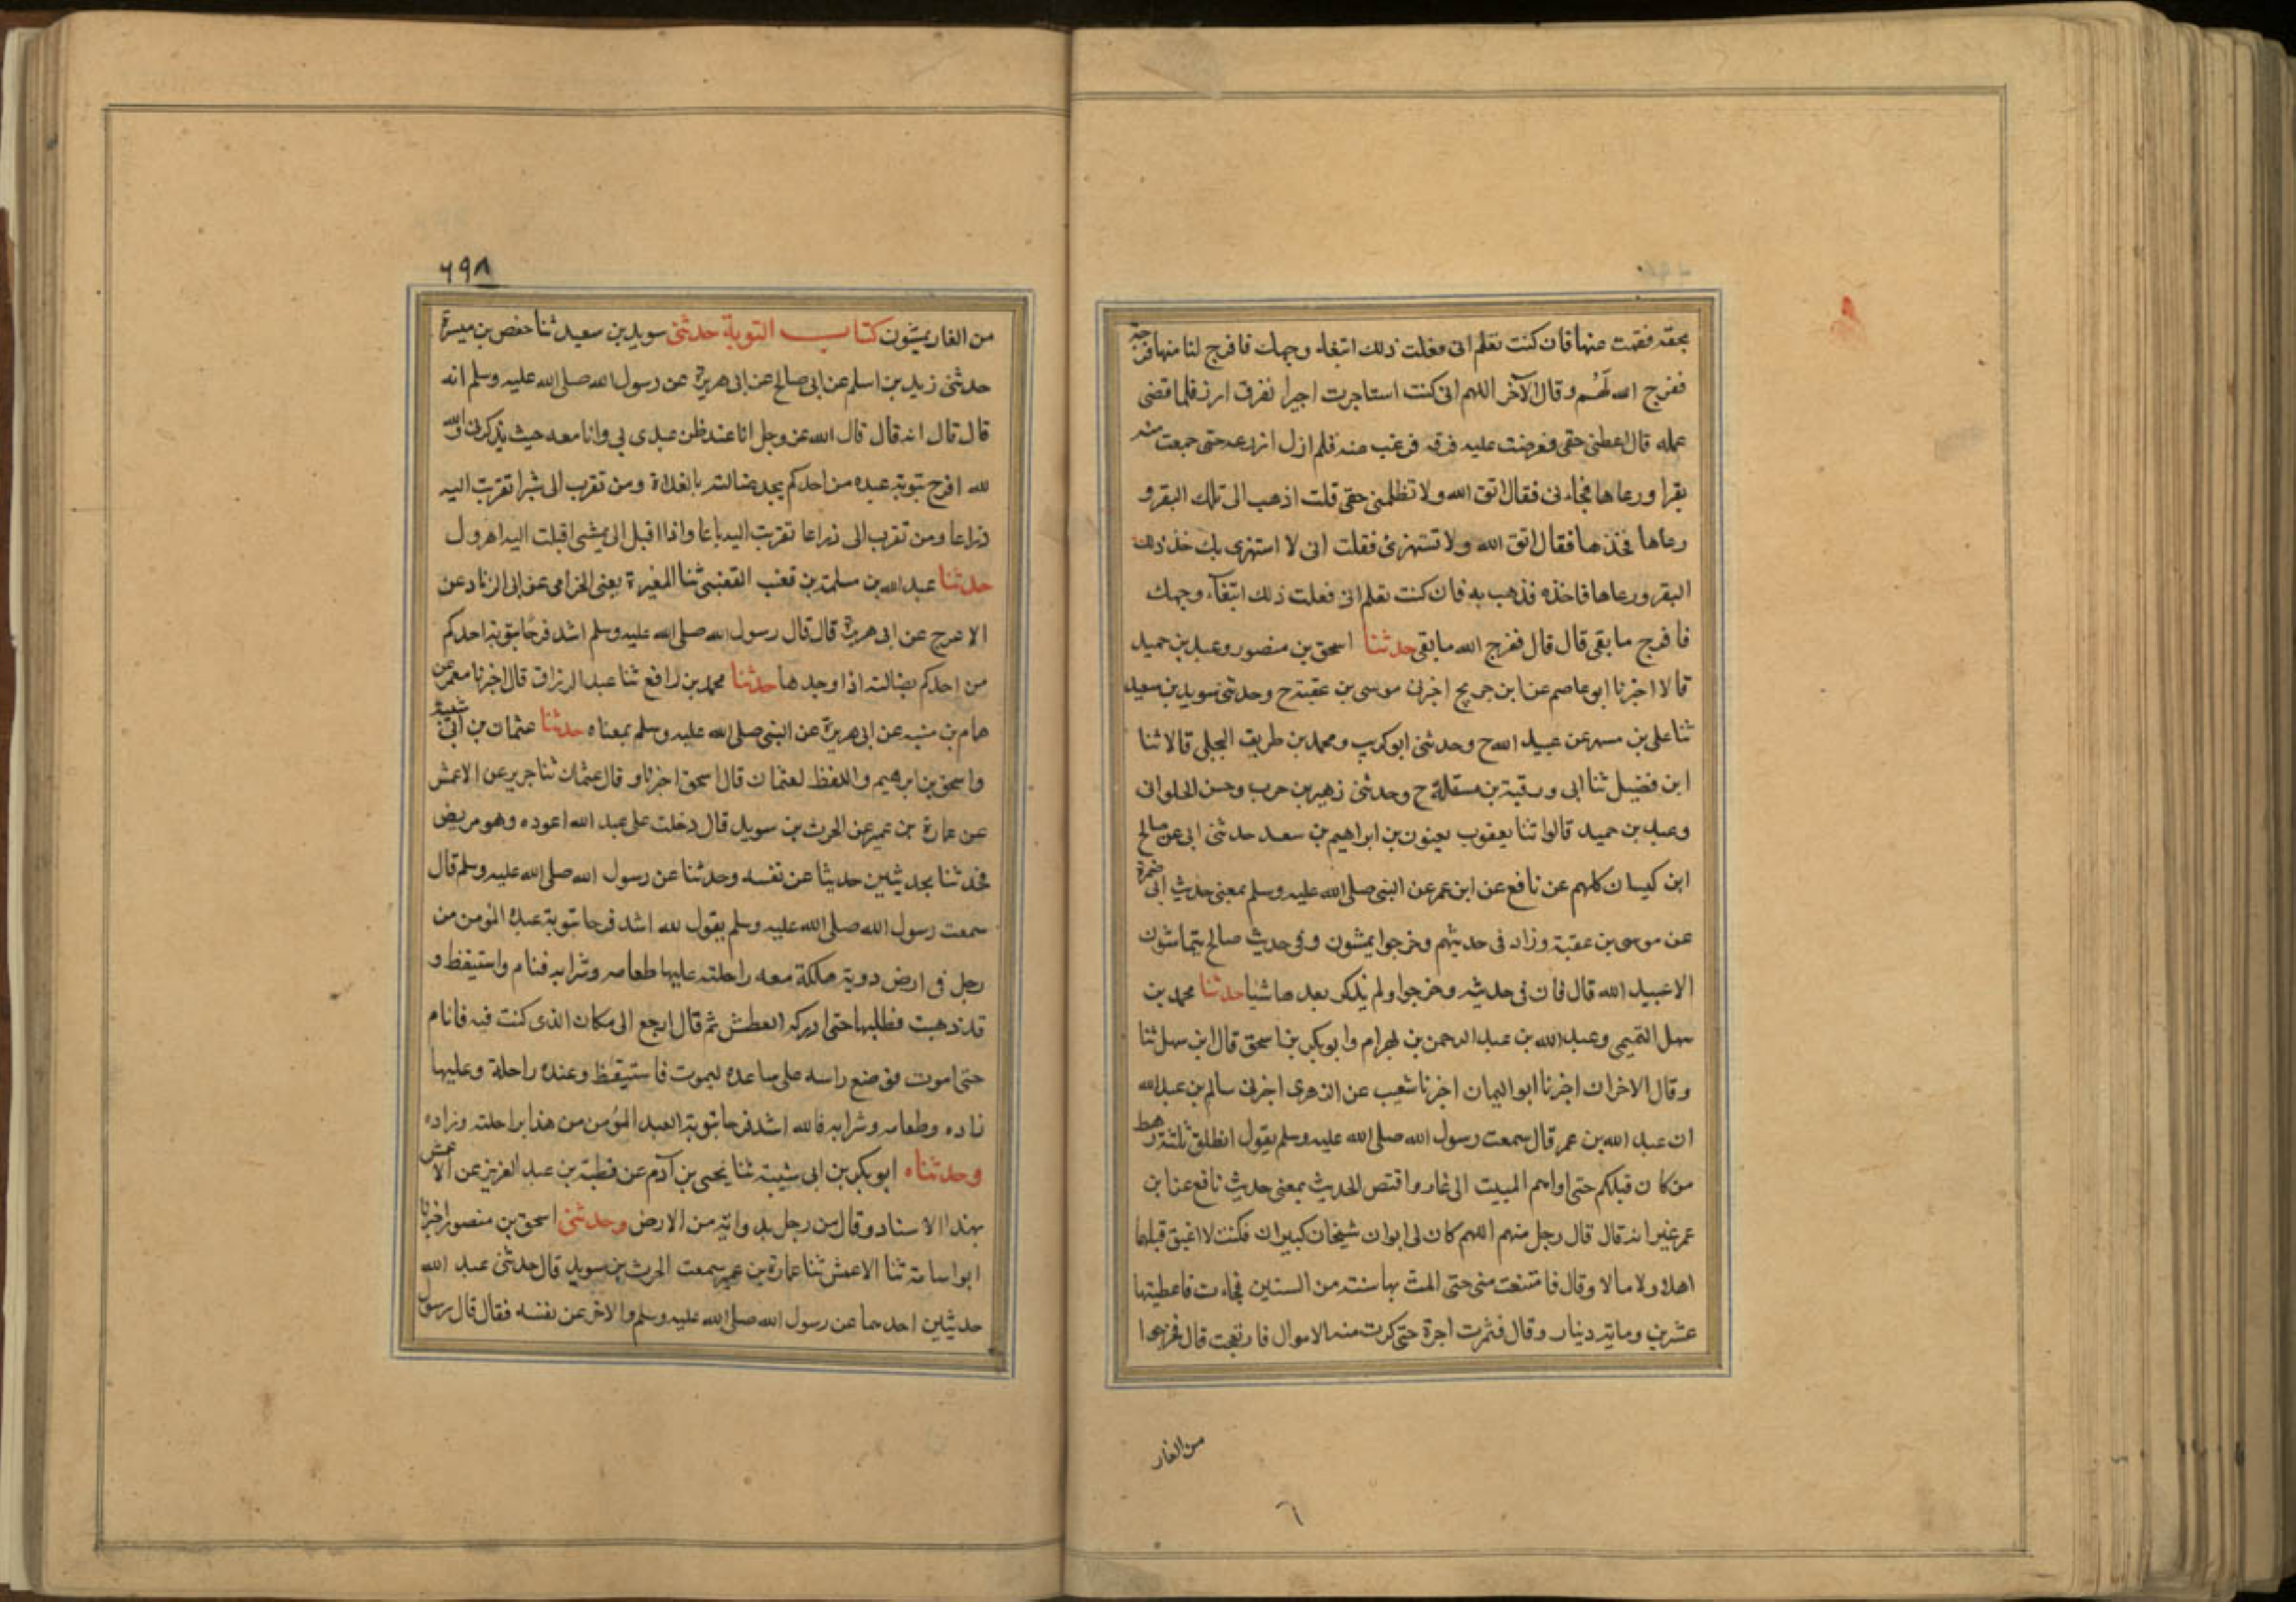 بحقه فقمت عنها فان كنت تعلم انى فعلت ذلك ابتغاء وجهك فافرج لنا منها فرجة
ففرج الله لَهُم وقال الآخر اللهم انى كنت استاجرت اجيرا بفرق ارز فلما قضى
عمله قال اعطنى حقى فعرضت عليه فرقه فرغب عنه فلم ازل ازرعه حتى جمعت منه
بقرا ورعاها فجاءنى فقال اتق الله ولا تظلمنى حقى قلت اذهب الى تلك البقر و
رعاها فخذها فقال اتق الله ولا تستهزئ فقلت انى لا استهزى بك خذ ذلك
البقر ورعاها فاخذه فذهب به فان كنت تعلم انى فعلت ذلك ابتغآء وجهك
فافرج ما بقى قال قال ففرج الله ما بقى حدثنا اسحق بن منصور وعبد بن حميد
قالا اخبرنا ابو عاصم عن ابن جريج اخبرنى موسى بن عقبة ح وحدثنى سويد بن سعيد
ثنا على بن مسهر عن عبيد الله ح وحدثنى ابو كريب ومحمد بن طريف البجلى قالا ثنا
ابن فضيل ثنا ابى ورقبة بن مسقلة ح وحدثنى زهير بن حرب وحسن الحلوانى
وعبد بن حميد قالوا ثنا يعقوب يعنون بن ابراهيم بن سعد حدثنى ابى عن صالح
ابن كيسان كلهم عن نافع عن ابن عمر عن النبى صلى الله عليه وسلم بمعنى حديث ابى ضمرة
عن موسى بن عقبة وزاد فى حديثهم وخرجوا يمشون وفى حديث صالح يتماشون
الا عبيد الله قال فان فى حديثه وخرجوا ولم يذكر بعدها شيا حدثنا محمد بن
سهل التميمى وعبد الله بن عبد الرحمن بن بهرام وابو بكر بن اسحق قال ابن سهل ثنا
وقال الاخران اخبرنا ابو اليمان اخبرنا شعيب عن الزهرى اخبرنى سالم بن عبد الله
ان عبد الله بن عمر قال سمعت رسول الله صلى الله عليه وسلم يقول انطلق ثلثة رهط
من كان قبلكم حتى اواهم المبيت الى غار واقتص الحديث بمعنى حديث نافع عن ابن
عمر غير انه قال قال رجل منهم اللهم كان لى ابوان شيخان كبيران فكنت لا اغبق قبلهما
اهلا ولا مالا وقال فامتنعت منى حتى المت بها سنة من السنين فجاءت فاعطيتها
عشرين وماية دينار وقال فثمرت اجرة حتى كرت منه الاموال فارتعجت قال فخرجوا
من الغار
٦٩٨
من الغار يمشون كتاب التوبة حدثنى سويد بن سعيد ثنا حفص بن ميسرة
حدثنى زيد بن اسلم عن ابى صالح عن ابى هريرة عن رسول الله صلى الله عليه وسلم انه
قال قال انه قال قال الله عز وجل انا عند ظن عبدى بى وانا معه حيث يذكرنى والله
لله افرح بتوبة عبده من احدكم يجد ضالته بالفلاة ومن تقرب الى شبرا تقربت اليه
ذراعا ومن تقرب الى ذراعا تقربت اليه باعا واذا اقبل الى يمشى اقبلت اليه اهرول
حدثنا عبد الله بن مسلمة بن قعنب القعنبى ثنا المغيرة يعنى الحزامى عن ابى الزناد عن
الاعرج عن ابى هريرة قال قال رسول الله صلى الله عليه وسلم اشد فرحًا بتوبة احدكم
من احدكم بضالته اذا وجدها حدثنا محمد بن رافع ثنا عبد الرزاق قال اخبرنا معمر عن
همام بن منبه عن ابى هريرة عن النبى صلى الله عليه وسلم بمعناه حدثنا عثمان بن ابى شيبة
واسحق بن ابرهيم واللفظ لعثمان قال اسحق اخبرنا وقال عثمان ثنا جرير عن الاعمش
عن عمارة بن عمير عن الحرث بن سويد قال دخلت على عبد الله اعوده وهو مريض
فحدثنا بحديثين حديثا عن نفسه وحدثنا عن رسول الله صلى الله عليه وسلم قال
سمعت رسول الله صلى الله عليه وسلم يقول لله اشد فرحا بتوبة عبده المؤمن من
رجل فى ارض دوية مهلكة معه راحلته عليها طعامه وشرابه فنام واستيقظ و
قد ذهبت فطلبها حتى ادركه العطش ثم قال ارجع الى مكان الذى كنت فيه فانام
حتى اموت فوضع راسه على ساعده ليموت فاستيقظ وعنده راحلة وعليها
زاده وطعامه وشرابه فالله اشد فرحا بتوبة العبد المؤمن من هذا براحلته وزاده
وحدثناه ابو بكر بن ابى شيبة ثنا يحيى بن آدم عن قطبة بن عبد العزيز عن الاعمش
بهذا الاسناد وقال من رجل بداوية من الارض وحدثنى اسحق بن منصور اخبرنا
ابو اسامة ثنا الاعمش ثنا عمارة بن عمير سمعت الحرث بن سويد قال حدثنى عبد الله
حديثين احدهما عن رسول الله صلى الله عليه وسلم والاخر عن نفسه فقال قال رسول